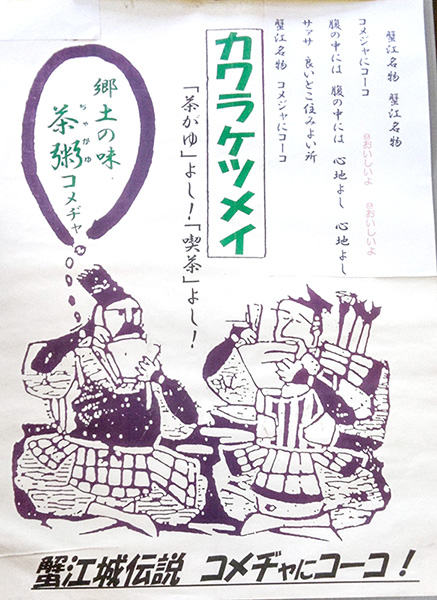 蟹江名物 蟹江名物
コメジャにコーコ
@おいしいよ @おいしいよ
腹の中には 腹の中には 心地よし 心地よし
サァサ 良いとこ住みよい所
蟹江名物 コメジャにコーコ
カワラケツメイ
「茶がゆ」よし!「喫茶」よし!
郷土の味
茶粥コメヂャ
ちゃがゆ
蟹江城伝説 コメヂャにコーコ!